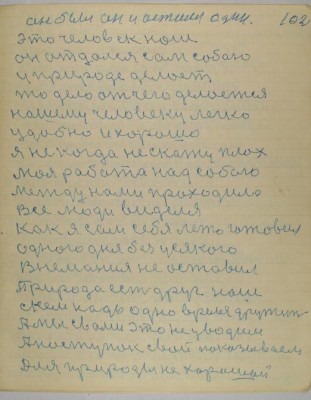 он были он и остался один. 102
Это человек наш
он отдался сам собаю
у природе делает
то дело от чего делается
нашему человеку легко
удобно и хорошо
я не когда не скажу плох
моя работа над собаю
между нами праходила
все люди виделя
как я сам себя лето готовил
одного дня без усякого
внемания не оставил
Природа есть друг наш
с кем надо одно время дружит
А мы свами это не уводим
А поступок свой показываем
Для природы не хароший